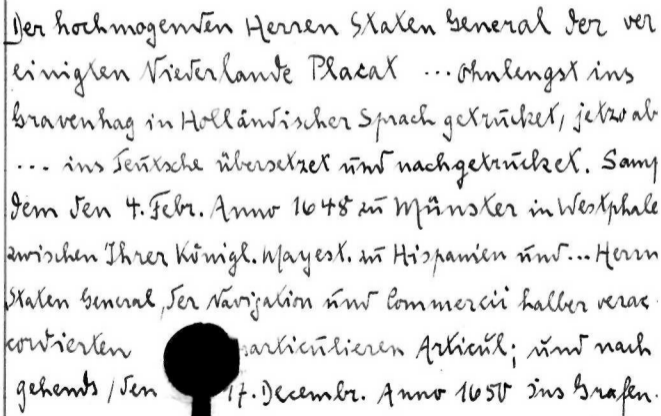 Der hochmogenden Herren Staten General der ver
einigten Niederlande Placat ... ohnlengst ins
Gravenhag in Holländischer Sprach getrücket, jetzo ab
... ins Teutsche übersetzet und nachgetrücket. Samp
dem den 4. Febr. Anno 1648 zu Münster in Westphale
zwischen Ihrer Königl. Mayest. zu Hispanien und ... Herrn
Staten General, der Navigation und Commercii halber verac
cordierten particulieren Articul; und nach
gehends / den 17. Decembr. Anno 1650 ins Grafen